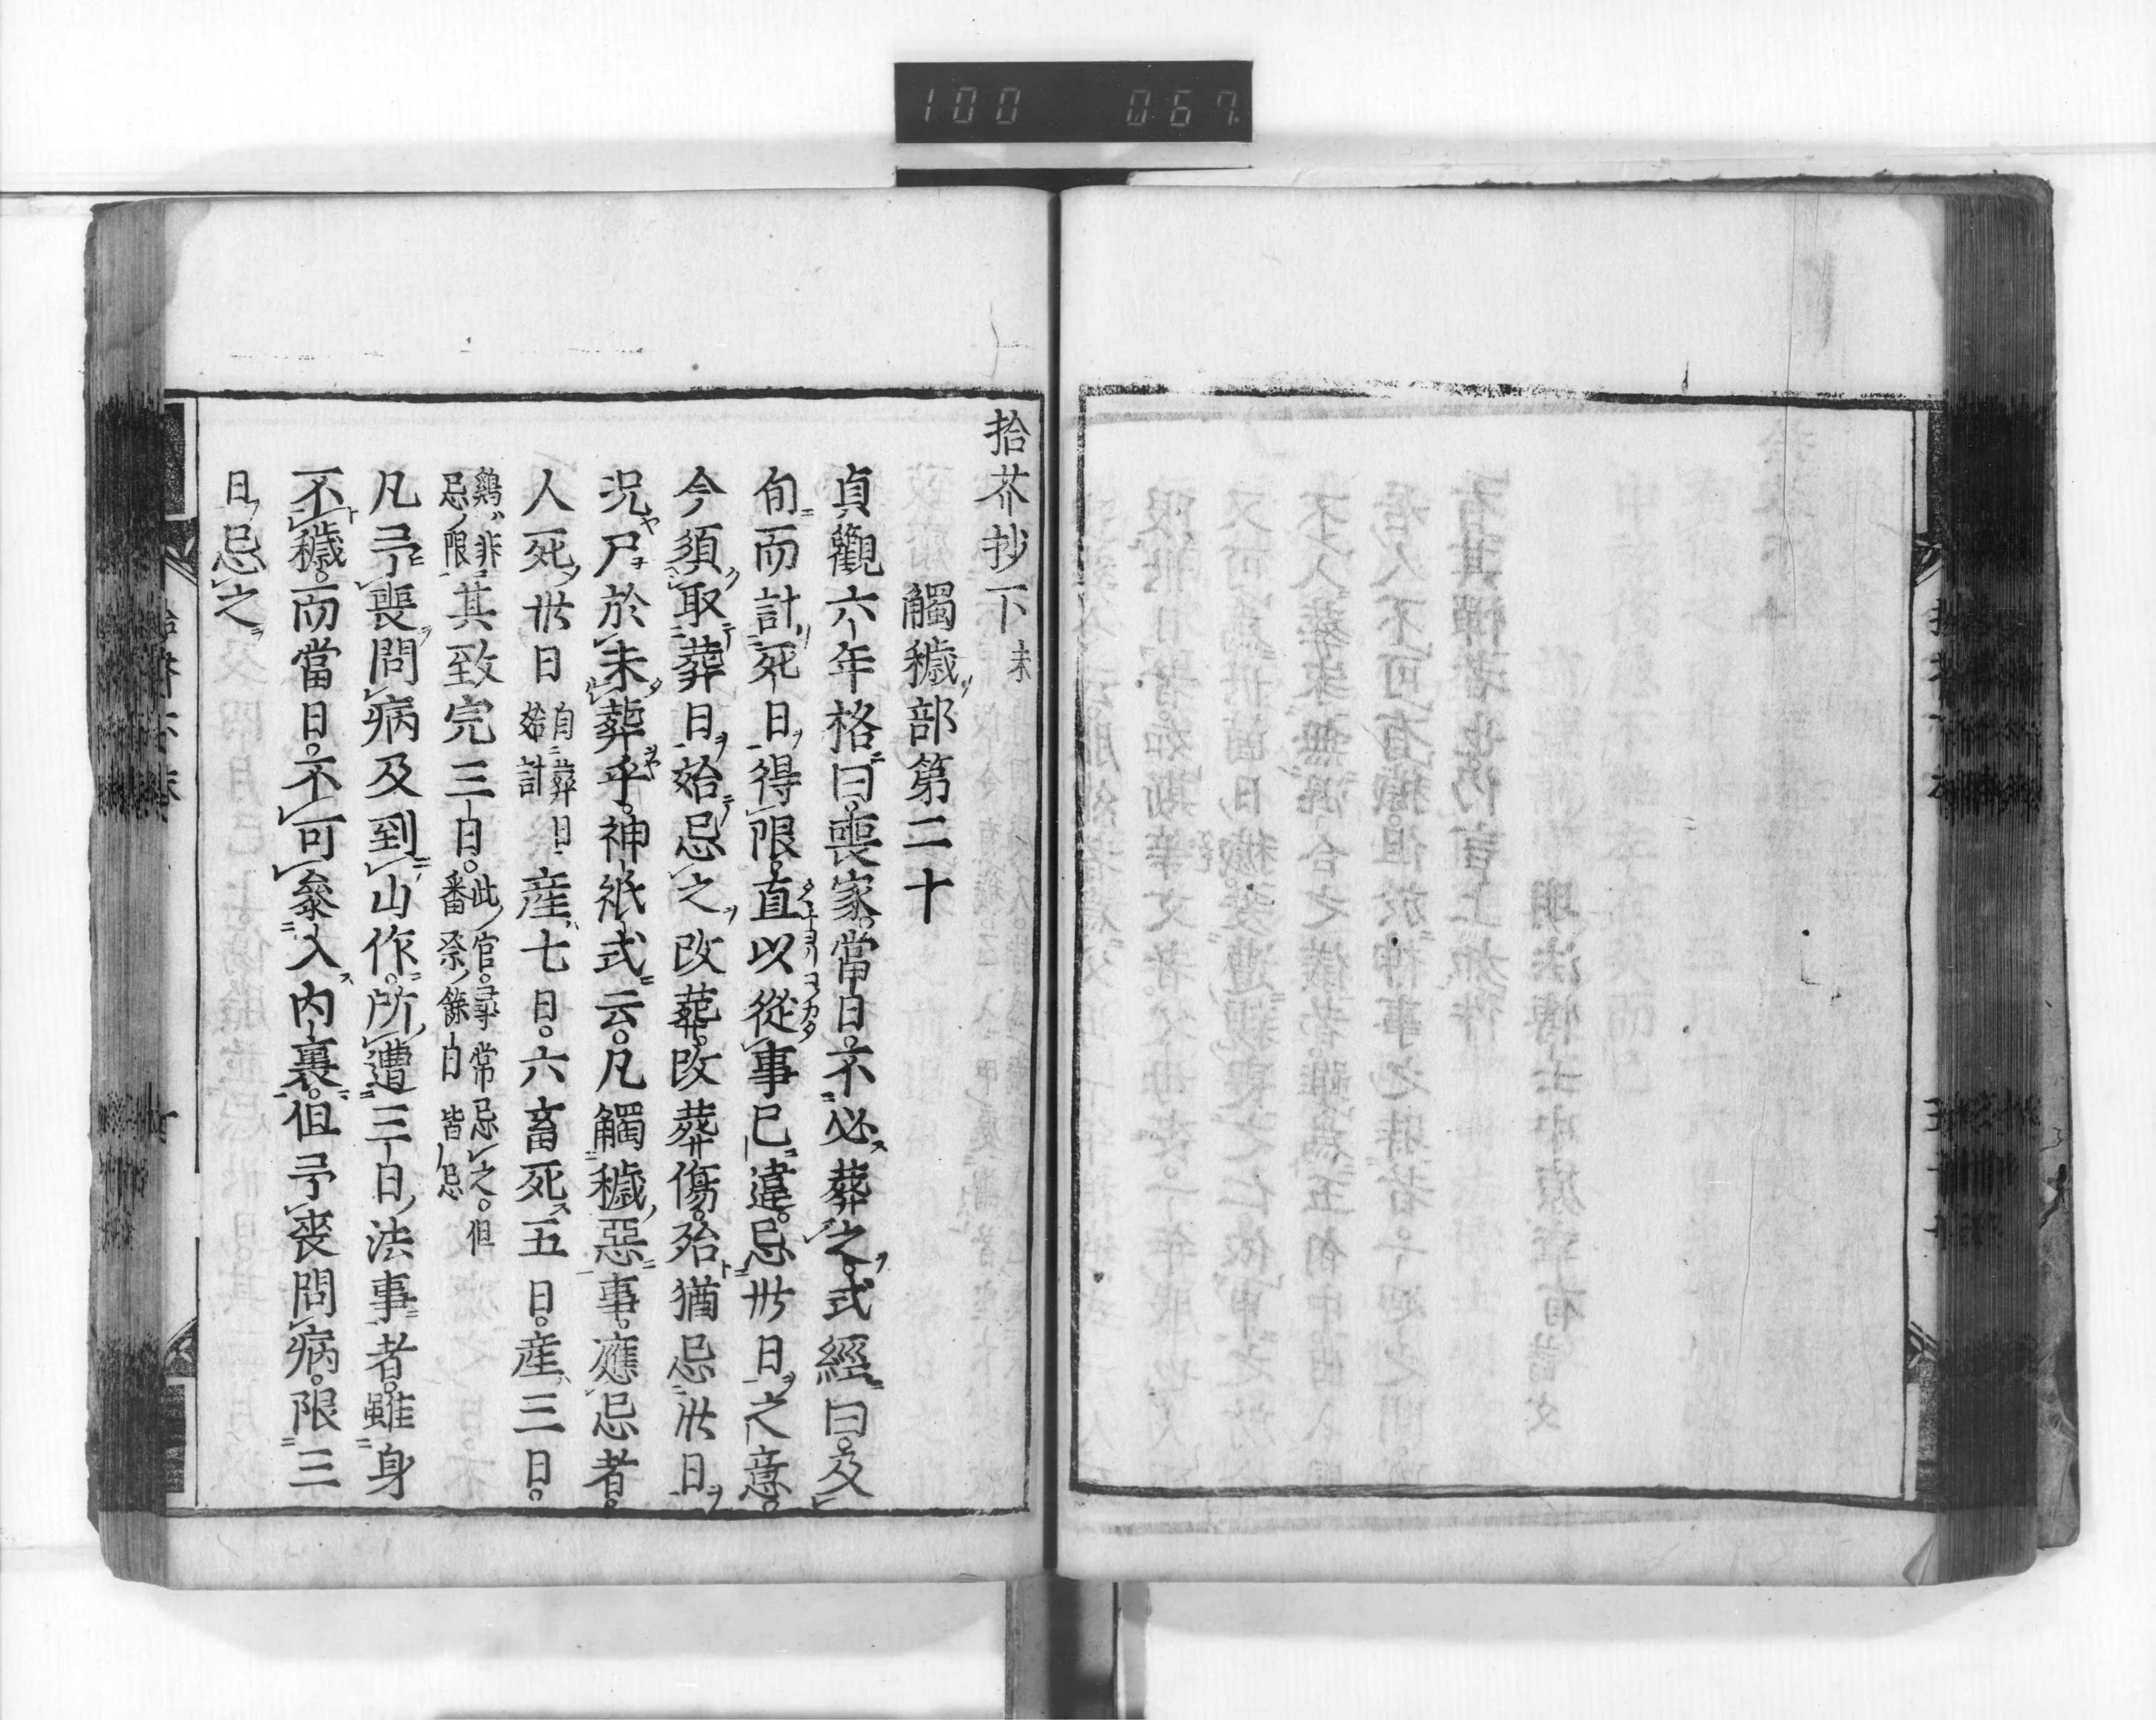 100 067
拾芥抄下 末
觸穢部第二十
貞觀六年格曰。喪家。當日。不必葬之。式經曰。及
旬而計死日。得限。直以從事已違。忌卅日之意。
今須取葬日。始忌之。改葬。改葬傷。殆猶忌卅日
况尸於未葬乎。神祇式云。凡觸穢惡事。應忌者。
人死卅日 自葬日始計 産七日。六畜死五日。産三日。
鷄非忌限 其致完三日。 此官。尋常忌之。但番祭餘日皆忌
凡弔喪問病及到山作。所遭三日法事者。雖身
不穢。而當日。不可參入内裏。但弔喪問病。限三
日忌之